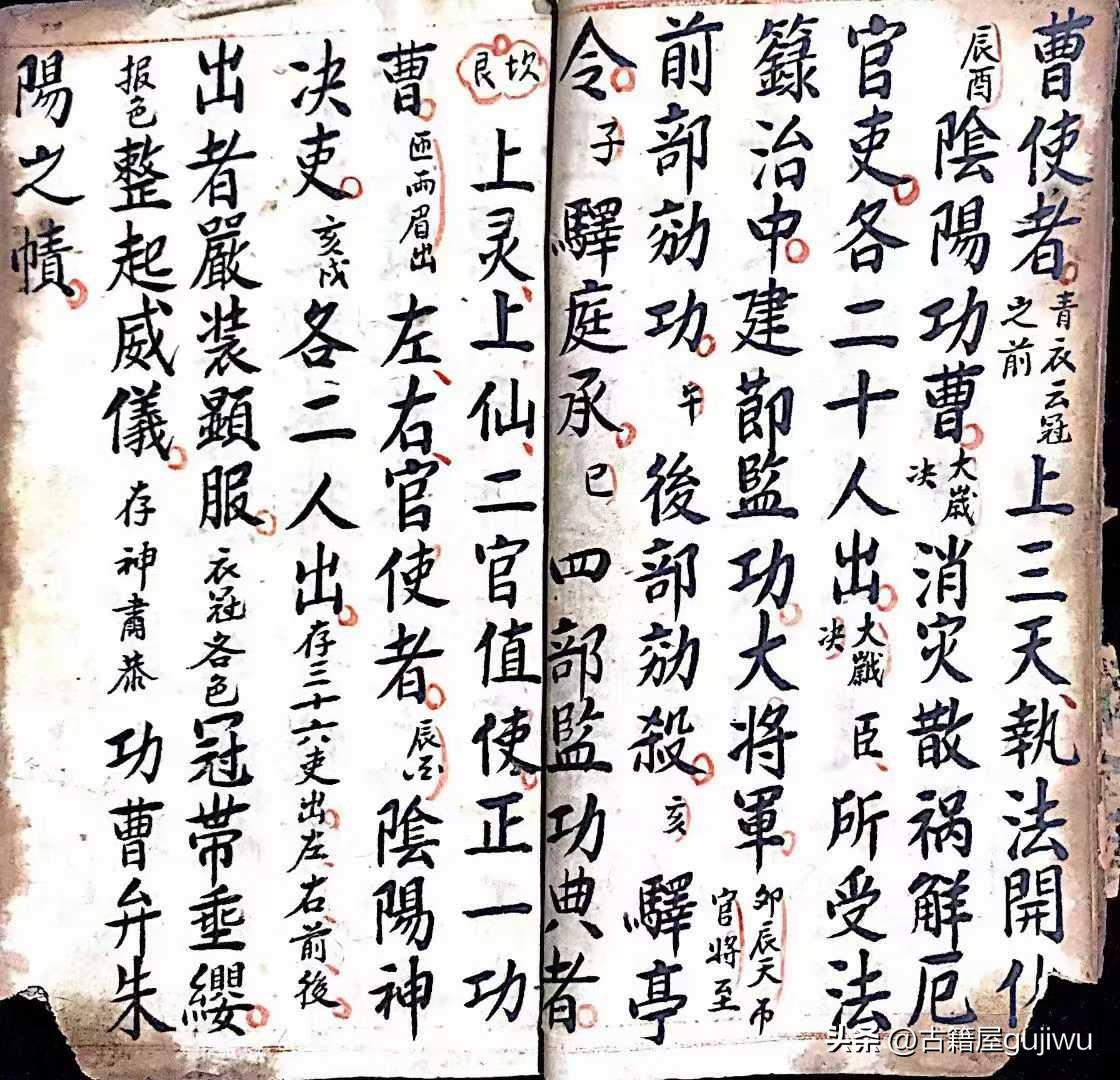 曹使者。青衣云冠之前上三天、執法開化
辰酉陰陽功曹。大歲决消灾散祸解厄
官吏。各二十人出。大歲决臣、所受法
籙治中。建節監功。大将軍。卯辰天帀官将至
前部効功。午後部効殺。亥驛亭
令。子驛庭承。巳四部監功典者。
坎艮上灵、上仙、二官值使。正一功
曹。両眉出左、右、官使者。辰陰陽神
决吏。亥戌各二人出。存三十六吏出。左、右、前後。
出者嚴装顯服。衣冠各色冠带垂纓。
报色整起威儀。存神肅恭功曹弁朱
陽之幘。
头条 @古籍屋gujiwu